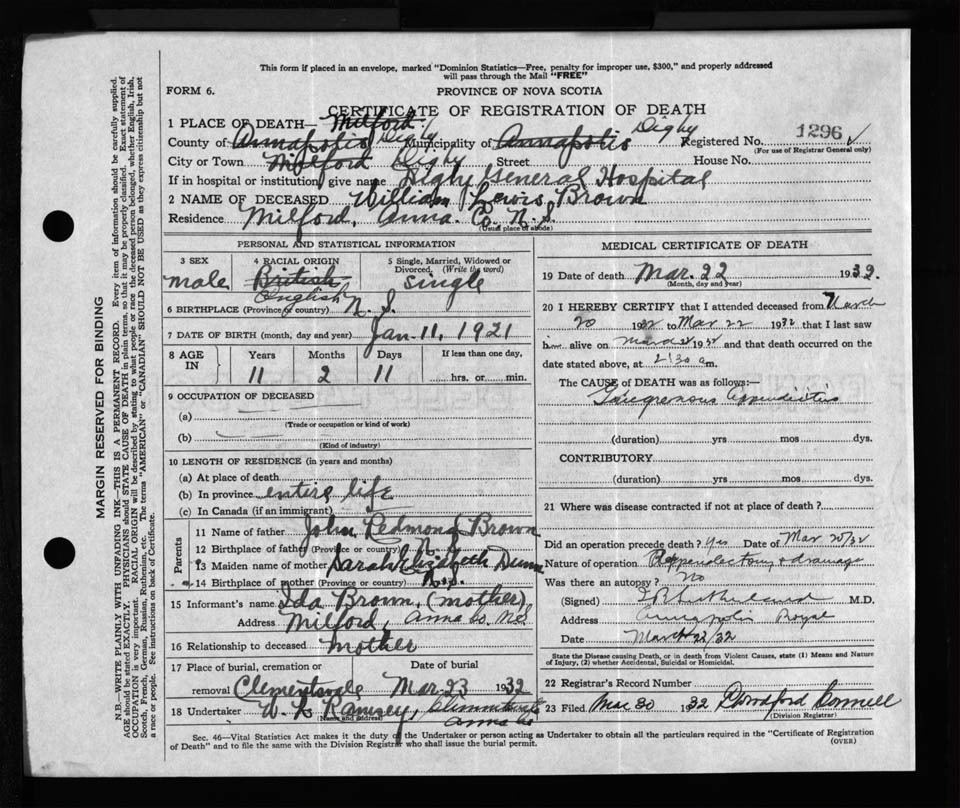 This form if placed in an envelope, marked "Dominion Statistics—Free, penalty for improper use, $300," and properly addressed
will pass through the Mail "FREE"
FORM 6.
PROVINCE OF NOVA SCOTIA
CERTIFICATE OF REGISTRATION OF DEATH
1 PLACE OF DEATH— Milford
County of Annapolis Digby Municipality of Annapolis Digby Registered No. 1296
(For use of Registrar General only)
City or Town Milford Digby Street House No.
If in hospital or institution, give name Digby General Hospital
2 NAME OF DECEASED William Lewis Brown
Residence Milford, Anna. Co. N. S.
(Usual place of abode)
PERSONAL AND STATISTICAL INFORMATION
3 SEX
male
4 RACIAL ORIGIN
British
English
5 Single, Married, Widowed or
Divorced. (Write the word)
single
6 BIRTHPLACE (Province or country) N. S.
7 DATE OF BIRTH (month, day and year) Jan. 11, 1921
8 AGE IN
Years Months Days If less than one day,
11 2 11 hrs. or min.
9 OCCUPATION OF DECEASED
(a)
(Trade or occupation or kind of work)
(b)
(Kind of industry)
10 LENGTH OF RESIDENCE (in years and months)
(a) At place of death
(b) In province entire life
(c) In Canada (if an immigrant)
Parents
11 Name of father John Redmond Brown
12 Birthplace of father (Province or country) N. S.
13 Maiden name of mother Sarah Elizabeth Dunn
14 Birthplace of mother (Province or country) N. S.
15 Informant's name Ida Brown, (mother)
Address Milford, Anna Co. N.S.
16 Relationship to deceased mother
17 Place of burial, cremation or Date of burial
removal Clementsvale Mar. 23 1932
18 Undertaker W. L Ramsey, Clementsvale
(Name and address) Anna Co
MEDICAL CERTIFICATE OF DEATH
19 Date of death Mar. 22 1932.
(Month, day and year)
20 I HEREBY CERTIFY that I attended deceased from March
20 1932 to Mar 22 1932 that I last saw
him alive on March 22 1932 and that death occurred on the
date stated above, at 2:30 a m.
The CAUSE of DEATH was as follows:—
Gangrenous appendicitis
(duration) yrs mos dys.
CONTRIBUTORY
(duration) yrs mos dys.
21 Where was disease contracted if not at place of death?
Did an operation precede death? Yes Date of Mar 20/32
Nature of operation Appendectomy & drainage
Was there an autopsy? No
(Signed) M.D.
Address Annapolis Royal
Date March 22/32
State the Disease causing Death, or in death from Violent Causes, state (1) Means and Nature
of Injury, (2) whether Accidental, Suicidal or Homicidal.
22 Registrar's Record Number
23 Filed Mar 30 1932
(Division Registrar)
Sec. 46—Vital Statistics Act makes it the duty of the Undertaker or person acting as Undertaker to obtain all the particulars required in the "Certificate of Registration
of Death" and to file the same with the Division Registrar who shall issue the burial permit.
(OVER)
MARGIN RESERVED FOR BINDING
N.B.—WRITE PLAINLY WITH UNFADING INK—THIS IS A PERMANENT RECORD. Every item of information should be carefully supplied.
AGE should be stated EXACTLY. PHYSICIANS should STATE CAUSE OF DEATH in plain terms, so that it may be properly classified. Exact statement of
OCCUPATION is very important. RACIAL ORIGIN will be described by stating to what people or race the deceased person belonged, whether English, Irish,
Scotch, French, German, Russian, Ruthenian, etc. The terms "AMERICAN" or "CANADIAN" SHOULD NOT BE USED as they express citizenship but not
a race or people. See instructions on back of Certificate.